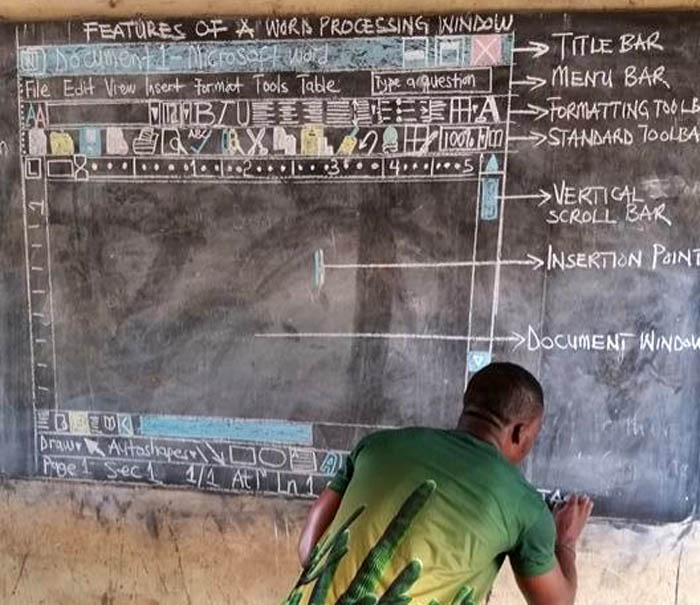 FEATURES OF A WORD PROCESSING WINDOW
Document 1 - Microsoft Word
TITLE BAR
File Edit View Insert Format Tools Table
Type a question
MENU BAR
AA
12
B I U
A
FORMATTING TOOL
ABC
100%
STANDARD TOOLBA
L
8 1 2 3 4 5
VERTICAL
SCROLL BAR
INSERTION POINT
DOCUMENT WINDOW
Draw Autoshapes
A
Page 1 Sec 1 1/1 At 1" Ln 1
TA